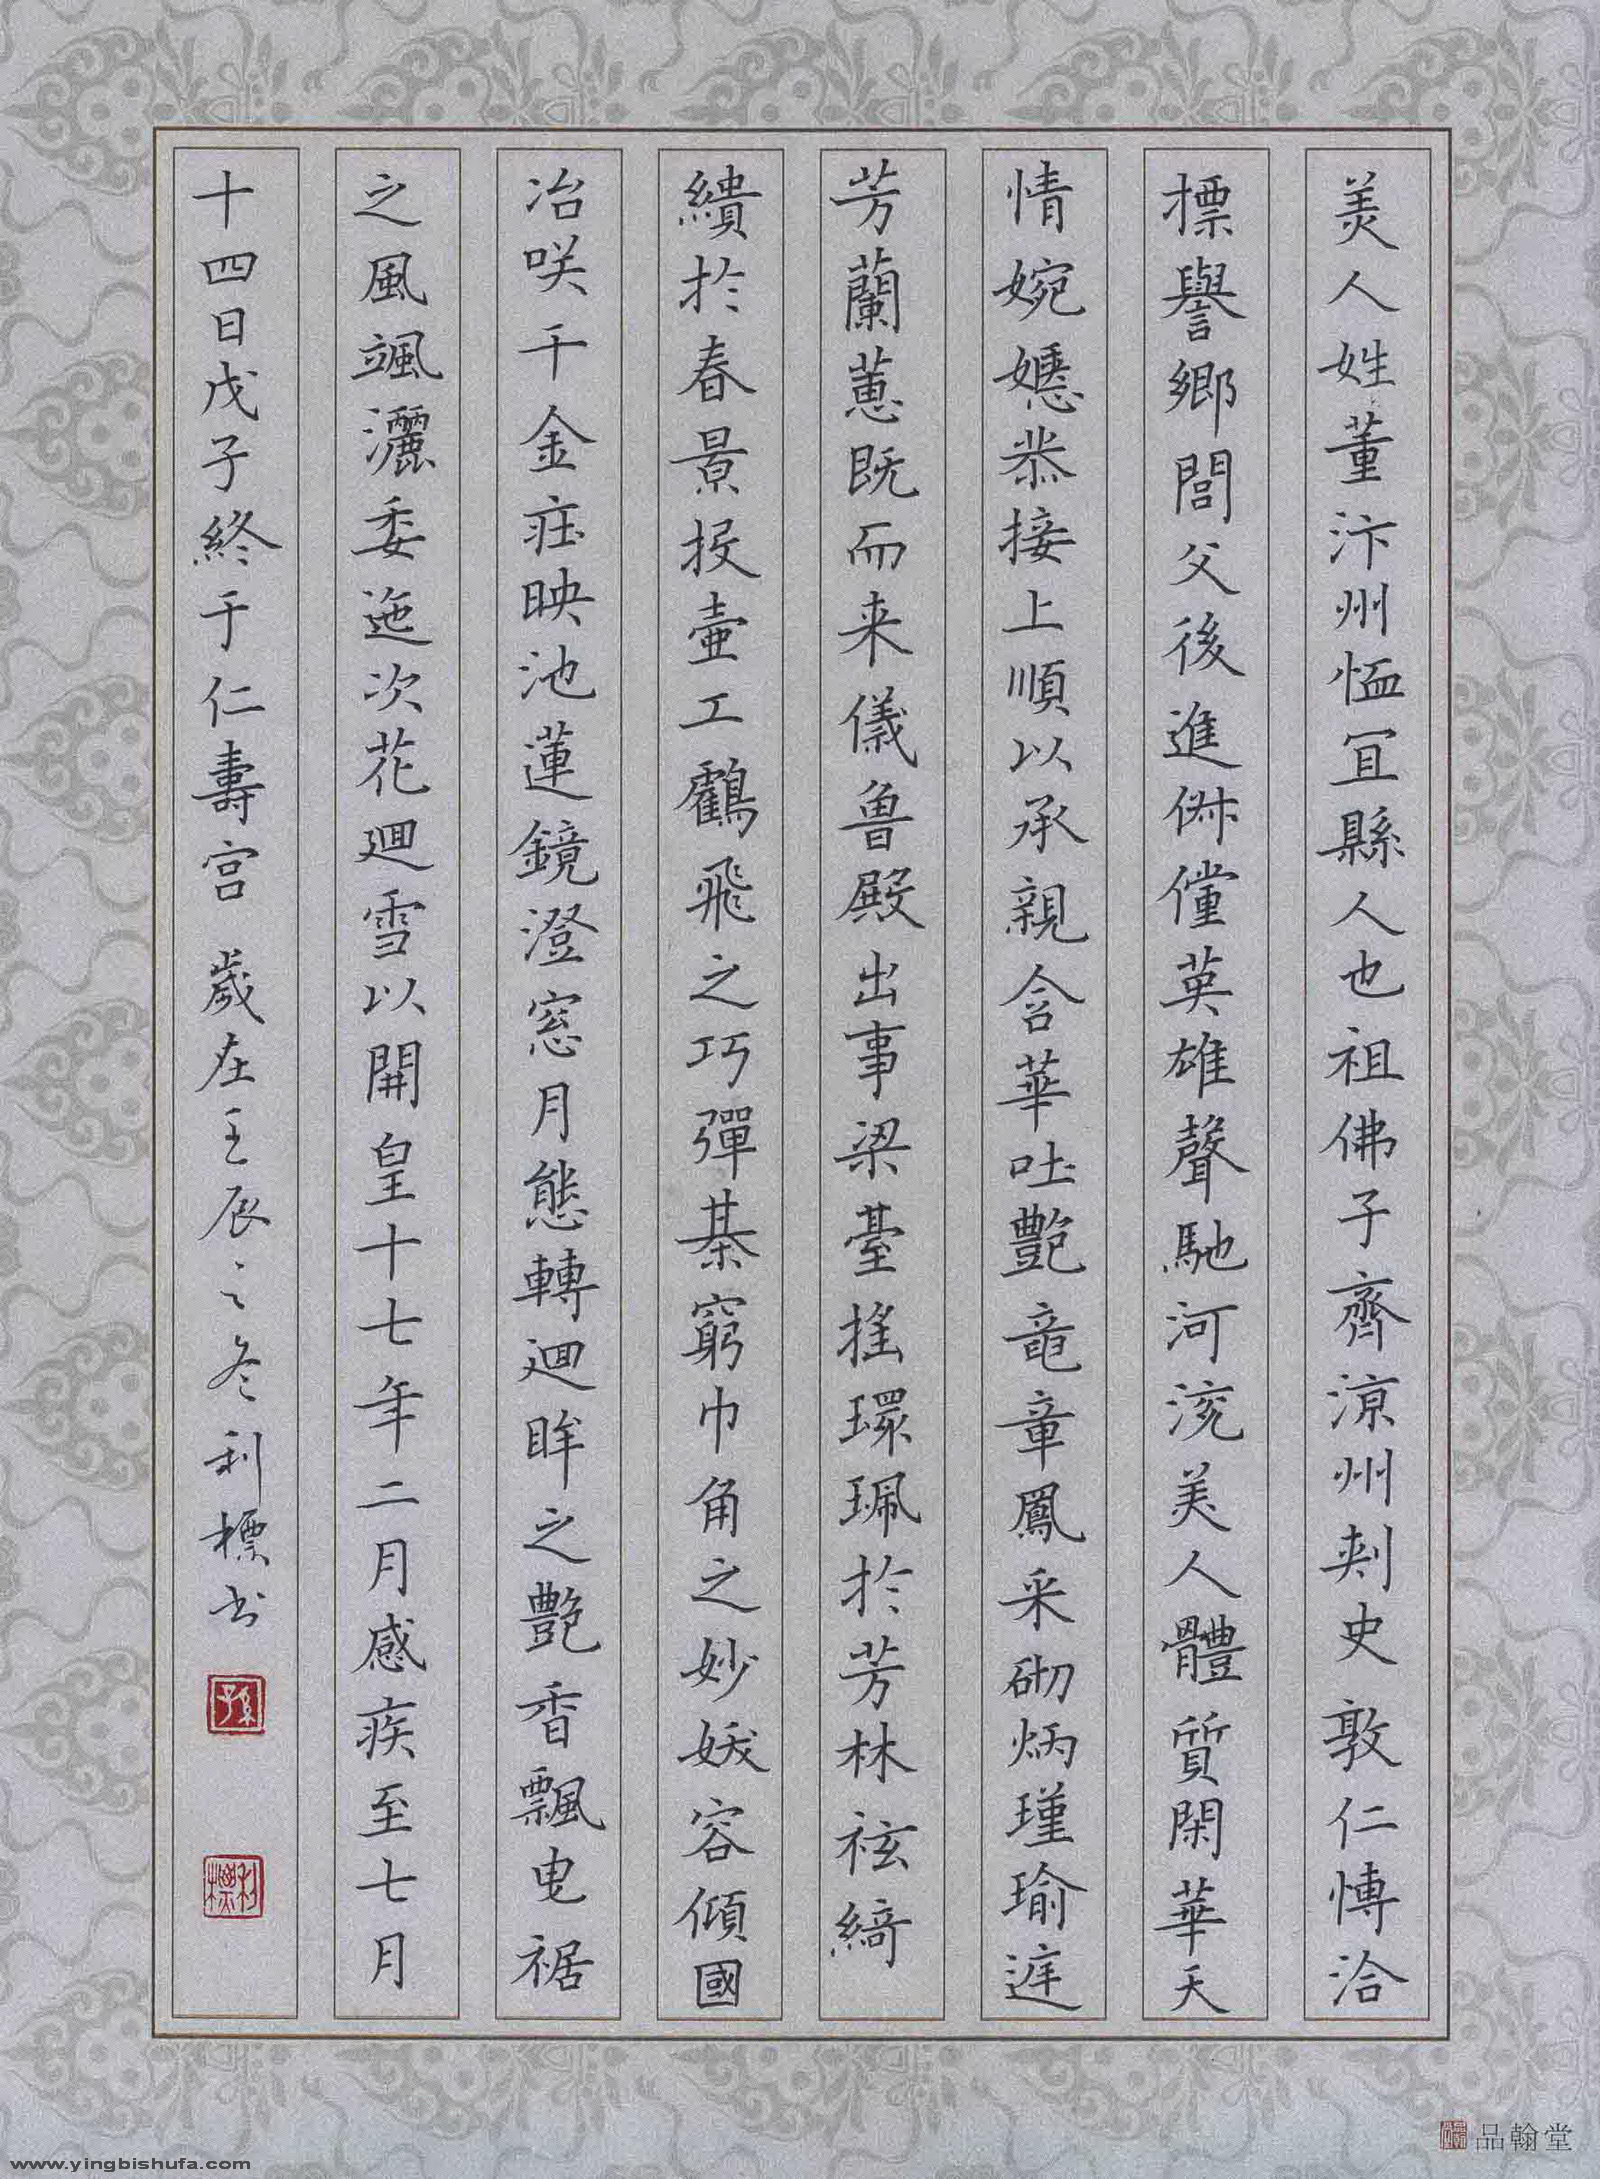 美人姓董汴州恤冝縣人也祖佛子齊涼州刾史敦仁愽洽
摽譽鄉閭父後進俶儻英雄聲馳河沇美人體質閑華天
情婉嫕恭接上順以承親含華吐艷竜章鳳采砌炳瑾瑜庭
芳蘭蕙既而来儀魯殿出事梁臺搖環珮於芳林袨綺
繢於春景投壷工鸖飛之巧彈棊窮巾角之妙妖容傾國
冶咲千金莊映池蓮鏡澄窓月態轉迴眸之艷香飄曳裾
之風颯灑委迤次花迴雪以開皇十七年二月感疾至七月
十四日戊子終于仁壽宫 歲在壬辰之冬利標书
孫
利標
品翰堂
www.yingbishufa.com